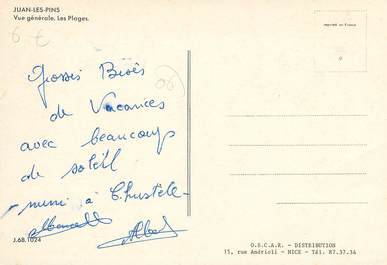 JUAN-LES-PINS
Vue générale. Les Plages.
6 €
06
imprimé en France
Grosses Bises
de Vacances
avec beaucoup
de soleil
mimi à
Albert
J.68.1024
O.S.C.A.R. - DISTRIBUTION
15, rue Andrioli - NICE - Tél. 87.37.34